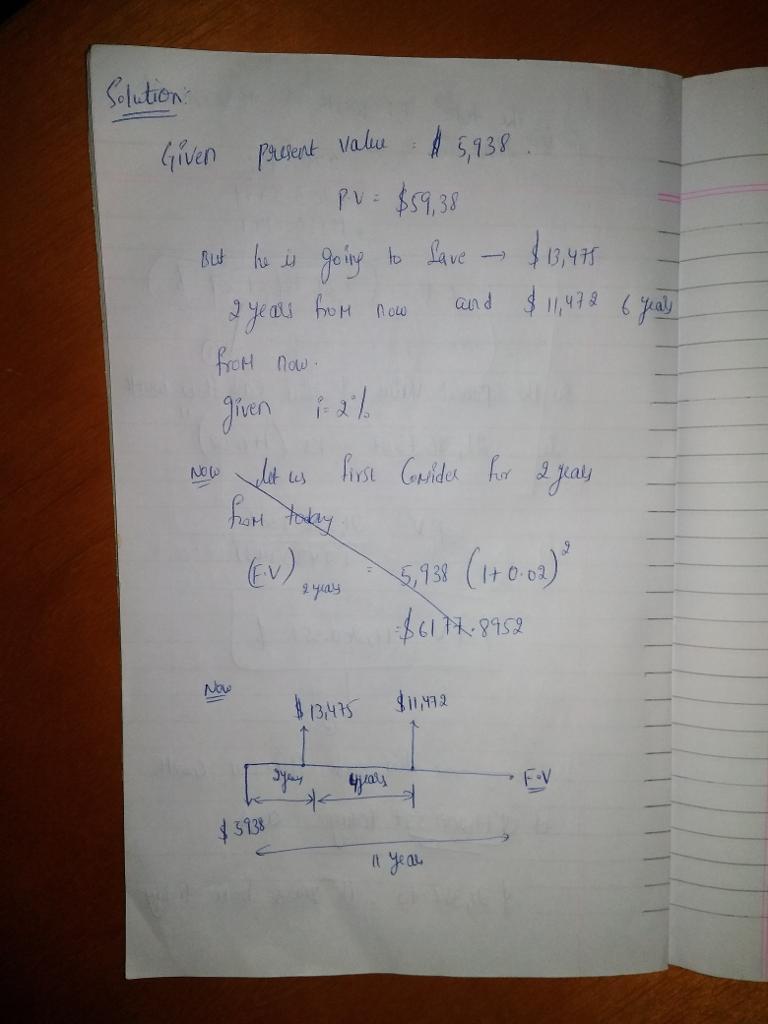 Solution:
Given present value = $ 5,938.
PV = $59,38
But he is going to save → $13,475
2 years from now and $ 11,472 6 years
from now.
given i = 2%
Now let us first Consider for 2 years
from today
(F.V) 2 years = 5,938 (1+0.02)²
= $6177.8952
Now
$ 13,475 $11,472
2 years 4 years F.V
$ 5938
11 years